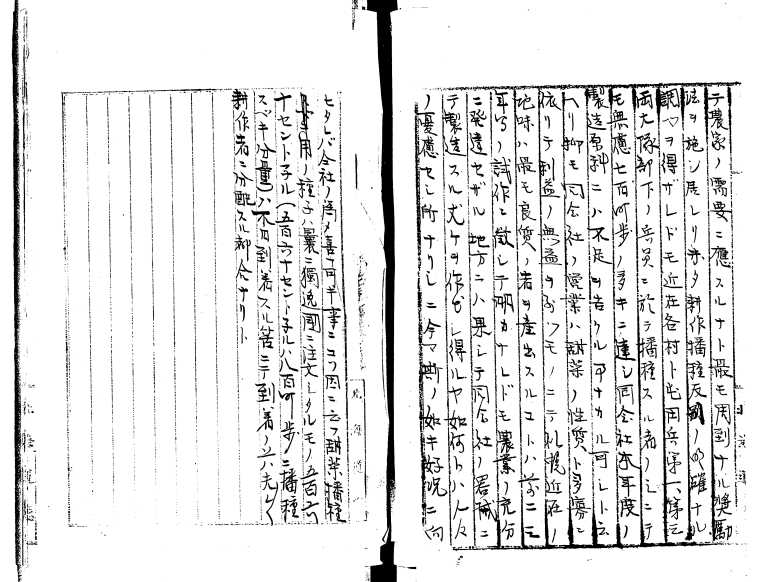 テ農家ノ需要ニ應スルナト最モ周到ナル奬勵
法ヲ施シ居レリ尓タ耕作播種反別ノ明確ナル
調マヲ得ザレドモ近在各村ト屯田兵第一、第三
両大隊部下ノ兵員ニ於テ播種スル者ノミニテ
モ無慮七百町歩ノ多キニ達シ同会社本年度ノ
製造原料ニハ不足ヲ告クル
ヘリ抑モ同会社ノ営業ハ甜菜ノ性質ト多寡ニ
依リテ利益ノ無益ヲ モノニテ札幌近在ノ
地味ハ最モ良質ノ者ヲ産出スルコトハ前ニモ
耳 ノ試作ニ徴シテ明カナレドモ農業ノ充分
ニ発達セザル地方ニハ果シテ同会社ノ器械ニ
テ製造スル丈ケヲ作 シ得ルヤ如何トハ人々
ノ憂慮セシ所ナリシニ今マ斯ノ如キ好況ニ向
セタレバ会社ノ為メ喜フ可キ事ニコソ因ニ云フ甜菜播種
用ノ種子ハ曩ニ獨逸國ニ注文シタルモノ五百六
十セント子ル(五百六十セント子ルハ八百町歩ニ播種
スベキ分量)ハ不日到着スル筈ニテ到着ノ上ハ夫々
耕作者ニ分配スル都合ナリト
北海道